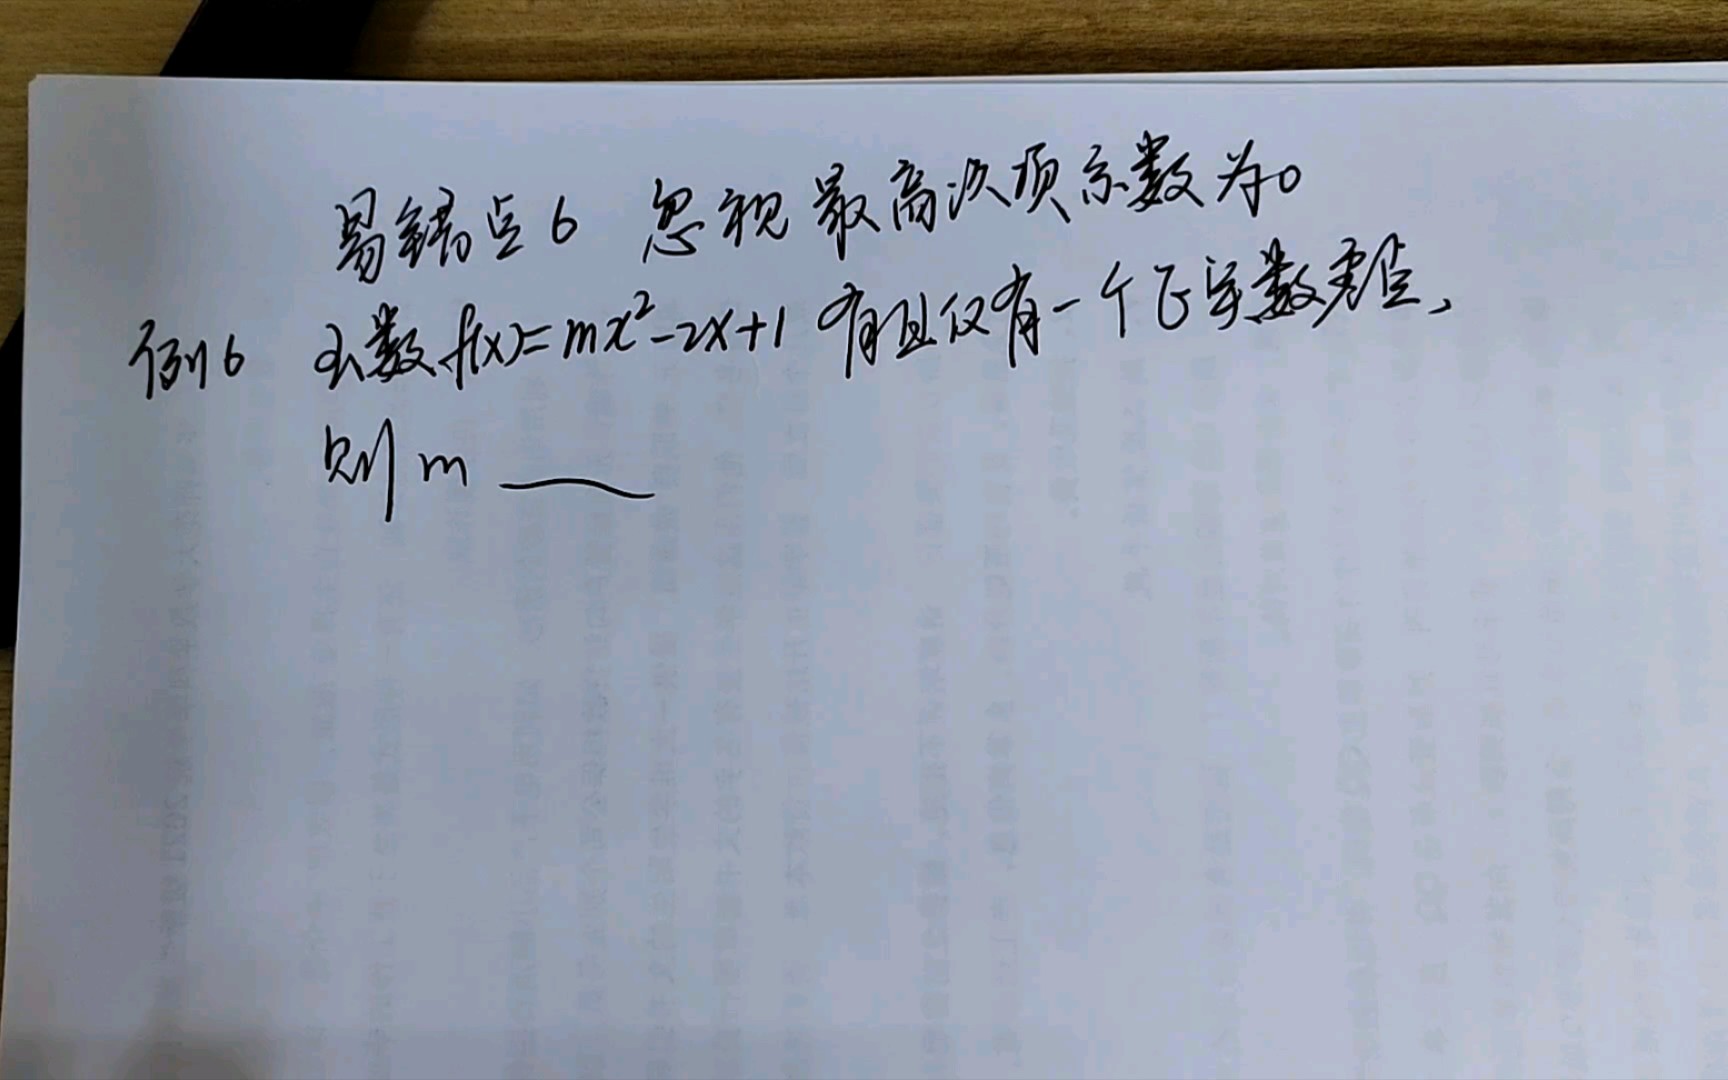 易错点6 忽视最高次项系数为0
例6 函数f(x)=mx²-2x+1 有且仅有一个正实数零点,
则m ____